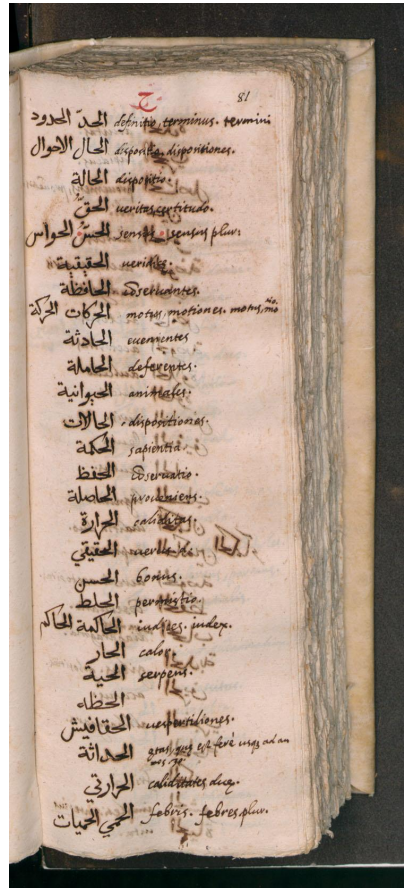 ح 81
الحدّ الحدود definitio, terminus. termini
الحال الاحوال dispositio. dispositiones.
الحالة dispositio.
الحقّ ueritas, certitudo.
الحسّ الحواس sensus. sensus plur:
الحقيقية
الحافظة cōseruantes.
الحركات الحركة motus, motiones. motus,
الحادثة euenientes
الحاملة deferentes.
الحيوانية animales.
الحالات dispositiones.
الحكمة sapientia.
الحفظ cōseruatio.
الحاصلة proueniens.
الحرارة caliditas.
الحقيقي
الحسن bonus.
الخلط permistio.
الحاكمة الحاكم iudices. judex.
الحار calor.
الحية serpens.
الحظه
الحقافيش uespertiliones.
الحداثة ętas, quę est ferè usq; ad an
nos 30.
الحرارتي caliditates duę.
الحمي الحميات febris. febres, plur.